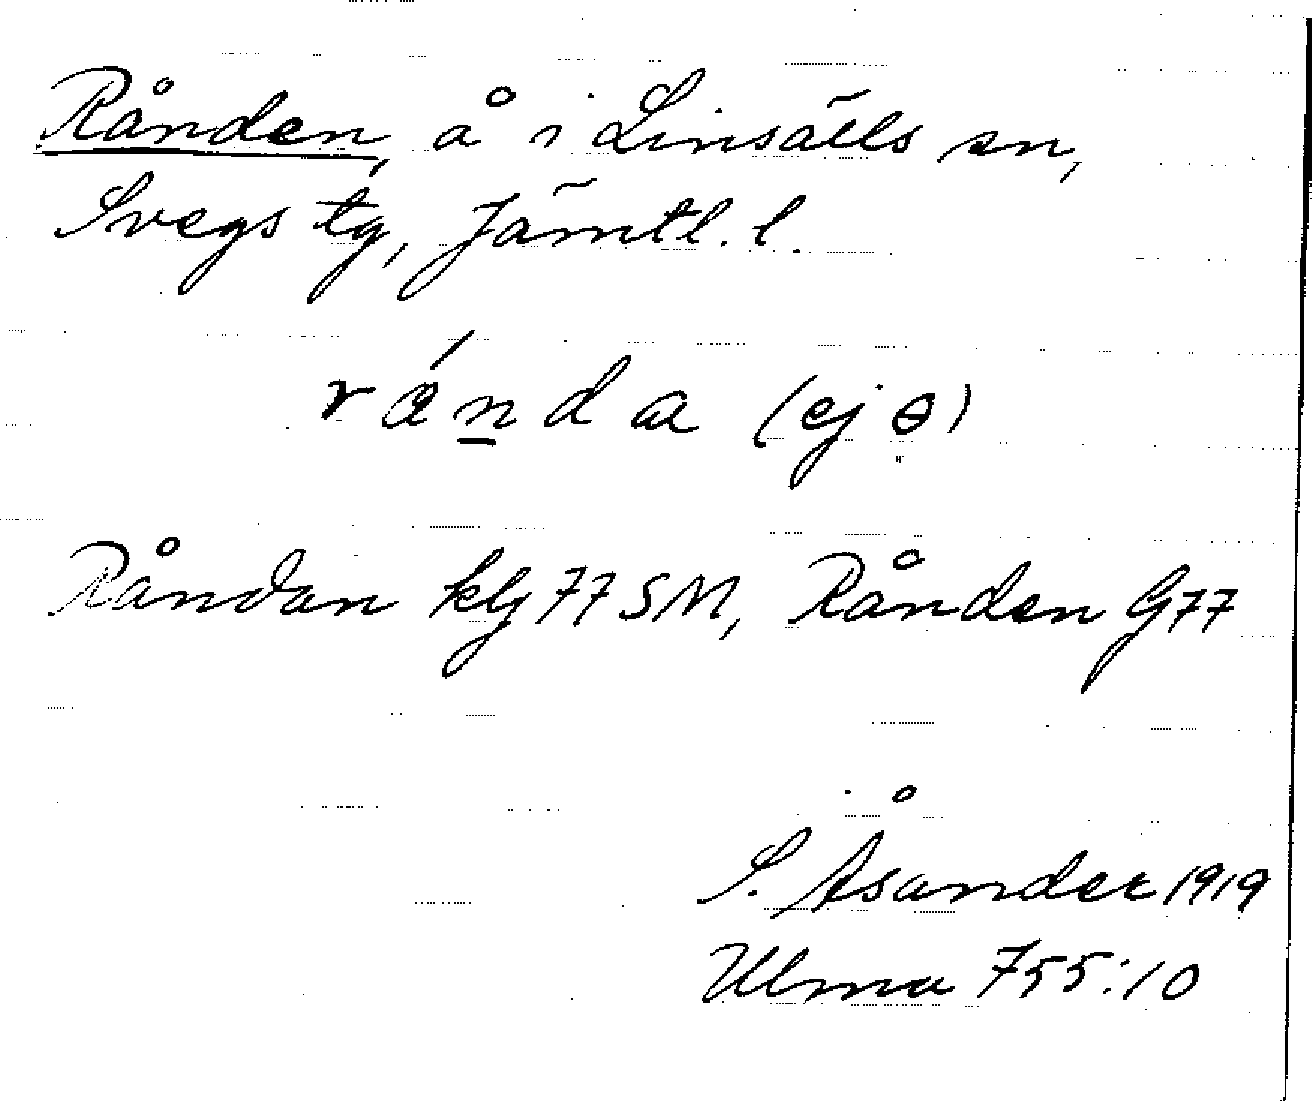 Rånden, å i Linsälls sn,
Svegs tg, Jämtl. l.
rǻnda (ej ɵ)
Råndan klj 77 SM, Rånden G77
S. Åsander 1919
Ulma 755:10